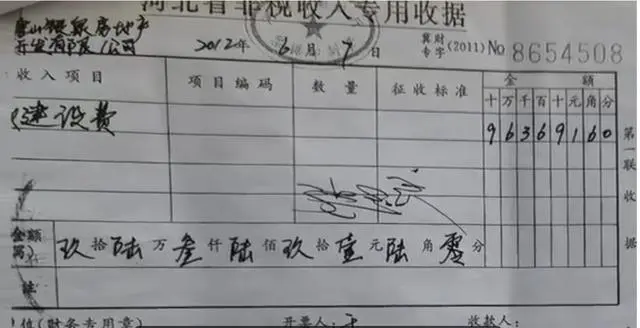 河北省非税收入专用收据
唐山银泉房地产
开发有限公司
2012年6月7日
冀财
专字(2011)No 8654508
收入项目 项目编码 数量 征收标准 金额
十万千百十元角分
建设费 96369160
第一联 收据
金额 玖拾陆万叁仟陆佰玖拾壹元陆角零分
注
位(财务专用章) 开票人: 收款人: